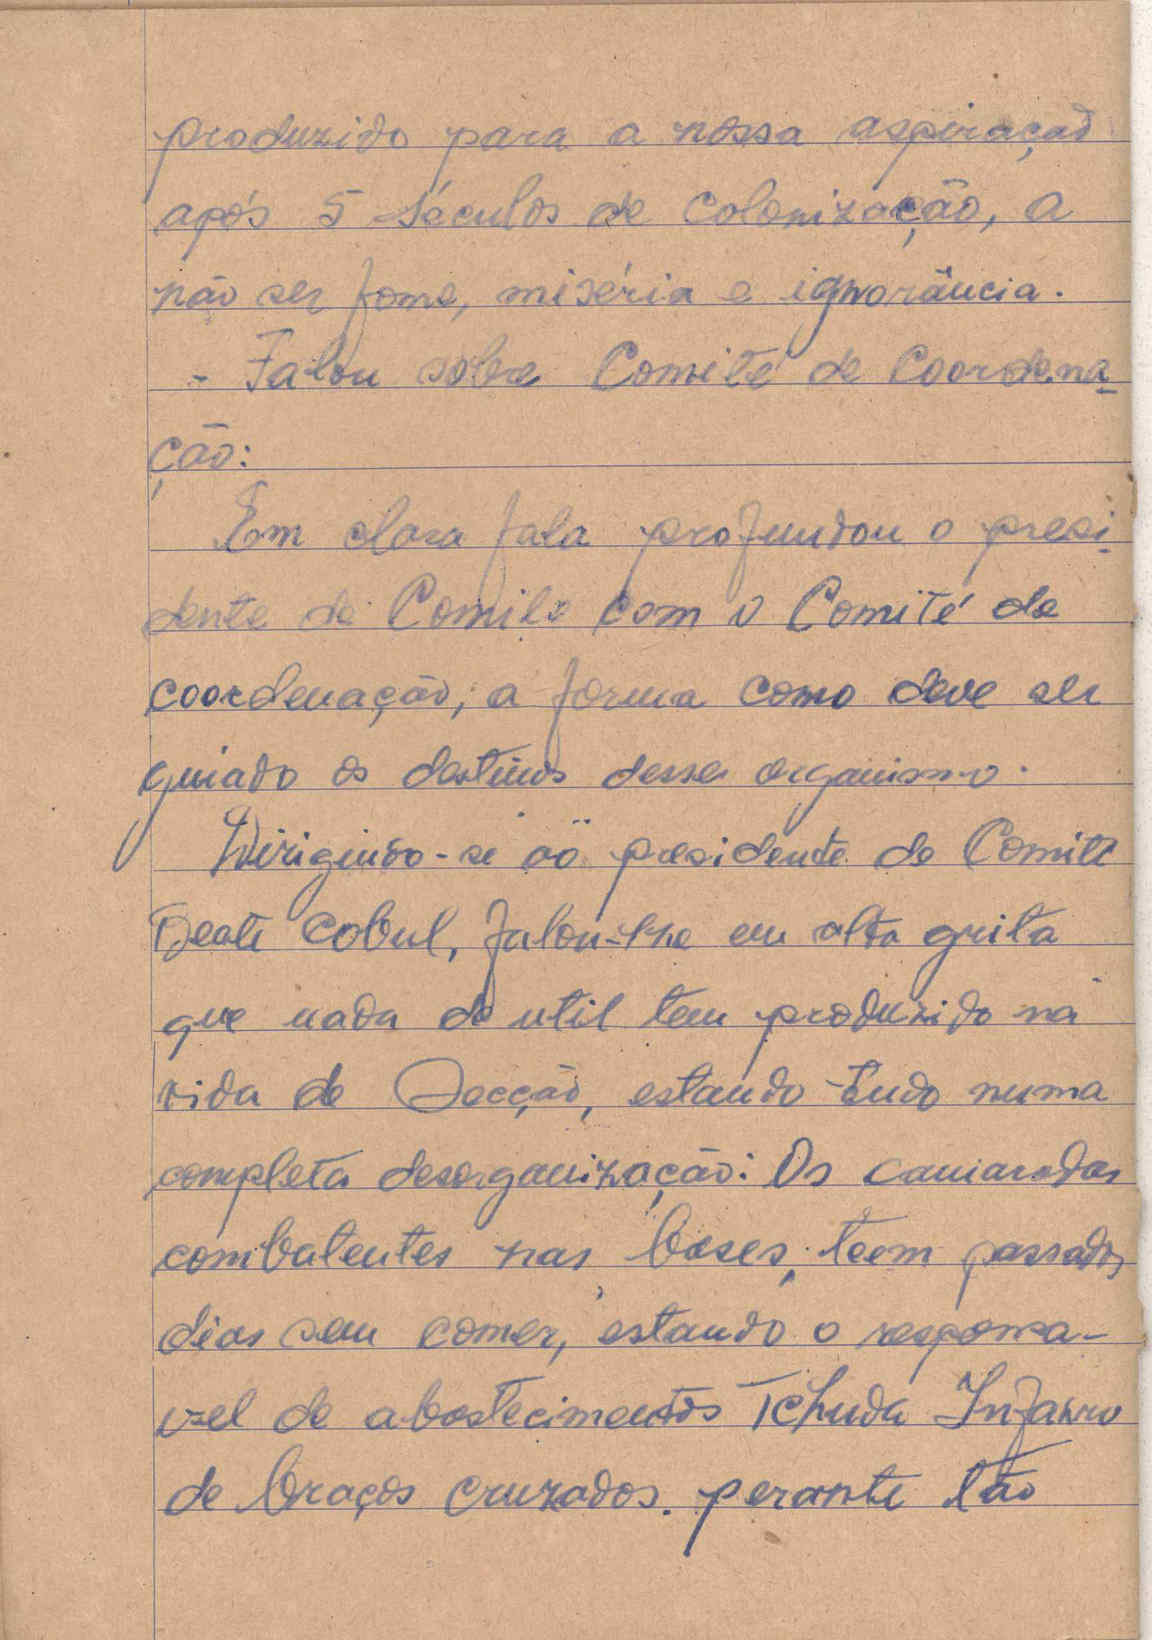 produzido para a nossa aspiração
após 5 séculos de colonização, a
não ser fome, miséria e ignorância.
- Falou sobre Comité de Coordena-
ção:
Em clara fala profundou o presi-
dente de Comite com o Comité de
coordenação, a forma como deve ser
guiado os destinos desses organismo.
Dirigindo-se ao presidente do Comite
Beate Cobul, falou-lhe em alta grita
que nada de util tem produzido na
vida de Secção, estando tudo numa
completa desorganização: Os camaradas
combatentes nas bases, teem passados
dias sem comer, estando o responsa-
vel de abastecimentos Tchuda Infarro
de braços cruzados. perante tão